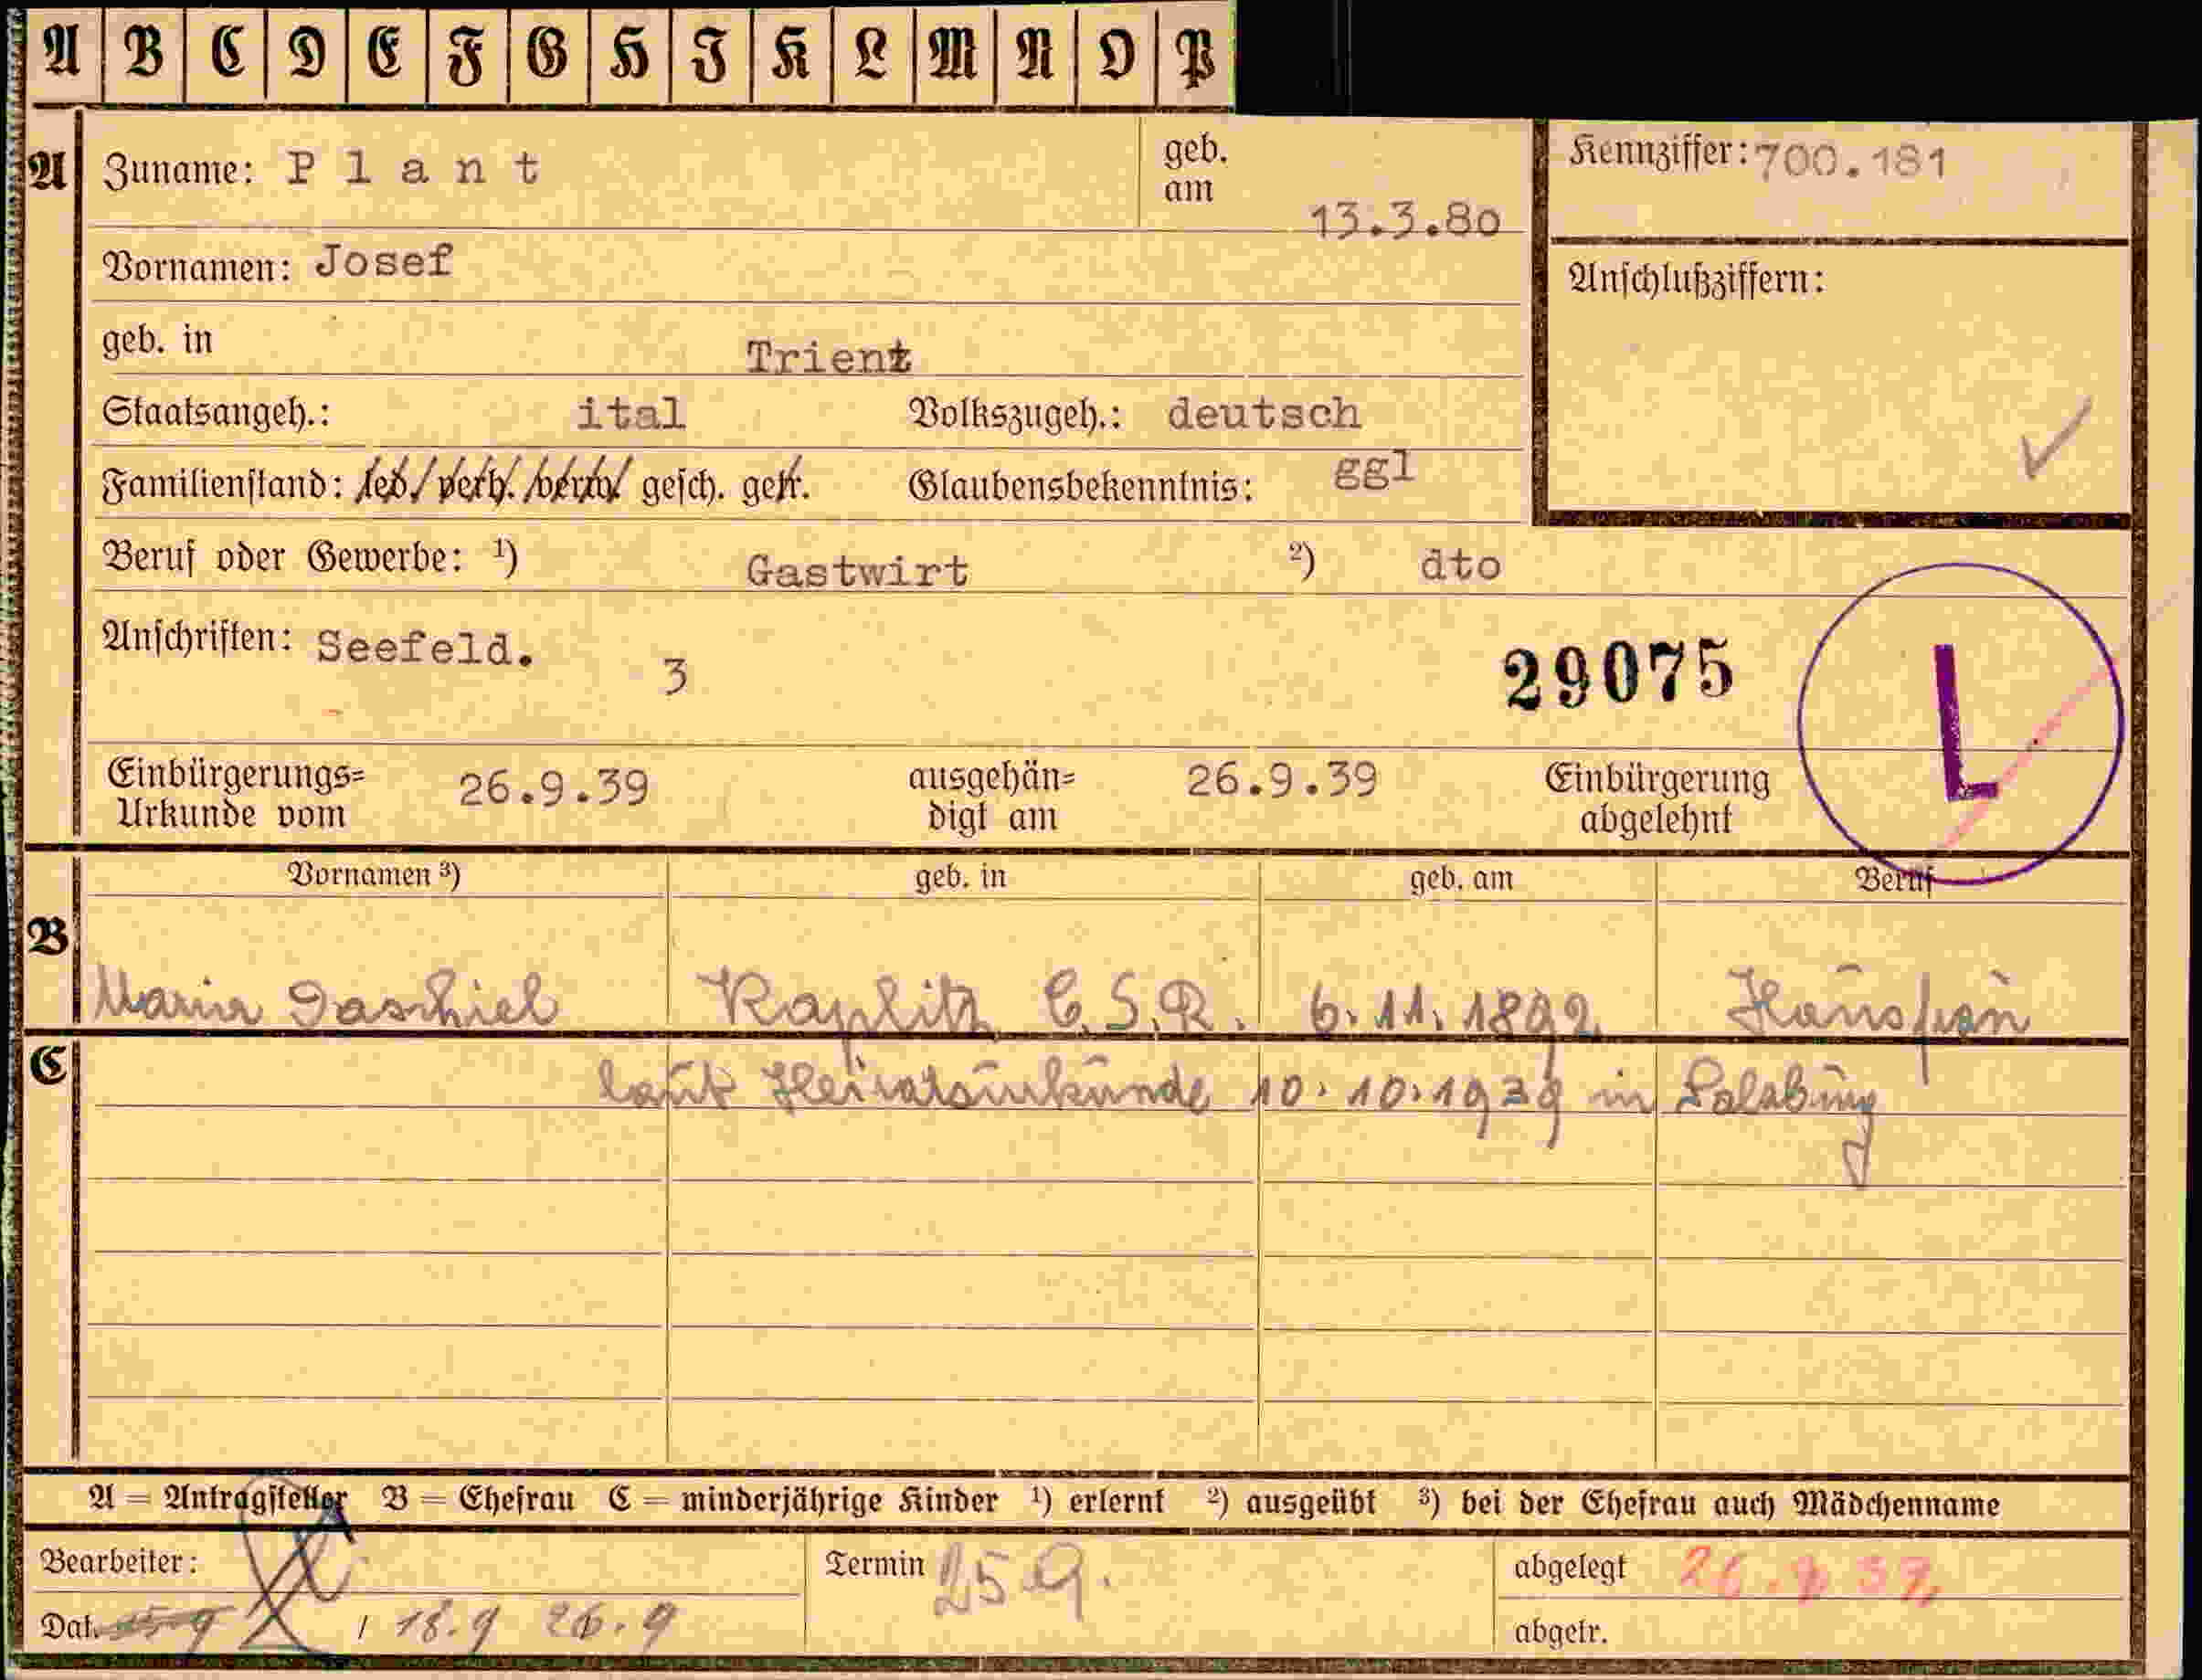 A B C D E F G H I K L M N O P
A Zuname: Plant geb. am 13.3.80 Kennziffer: 700.181
Vornamen: Josef Anschlußziffern:
geb. in Trient
Staatsangeh.: ital Volkszugeh.: deutsch
Familienstand: led. verh. verw. gesch. getr. Glaubensbekenntnis: ggl
Beruf oder Gewerbe: ¹) Gastwirt ²) dto
Anschriften: Seefeld. 3 29075 L
Einbürgerungs= Urkunde vom 26.9.39 ausgehän= digt am 26.9.39 Einbürgerung abgelehnt
Vornamen ³) geb. in geb. am Beruf
B Maria Kaplitz C.S.R. 6.11.1892 Hausfrau
C laut Heiratsurkunde 10.10.1939 in Salzburg
A = Antragsteller B = Ehefrau C = minderjährige Kinder ¹) erlernt ²) ausgeübt ³) bei der Ehefrau auch Mädchenname
Bearbeiter: Termin 25.9. abgelegt
Dat. / 18.9 26.9 abgetr.